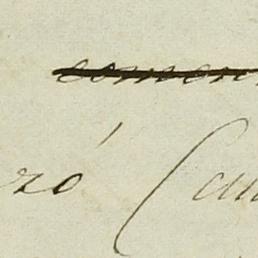 comen
zó Cau